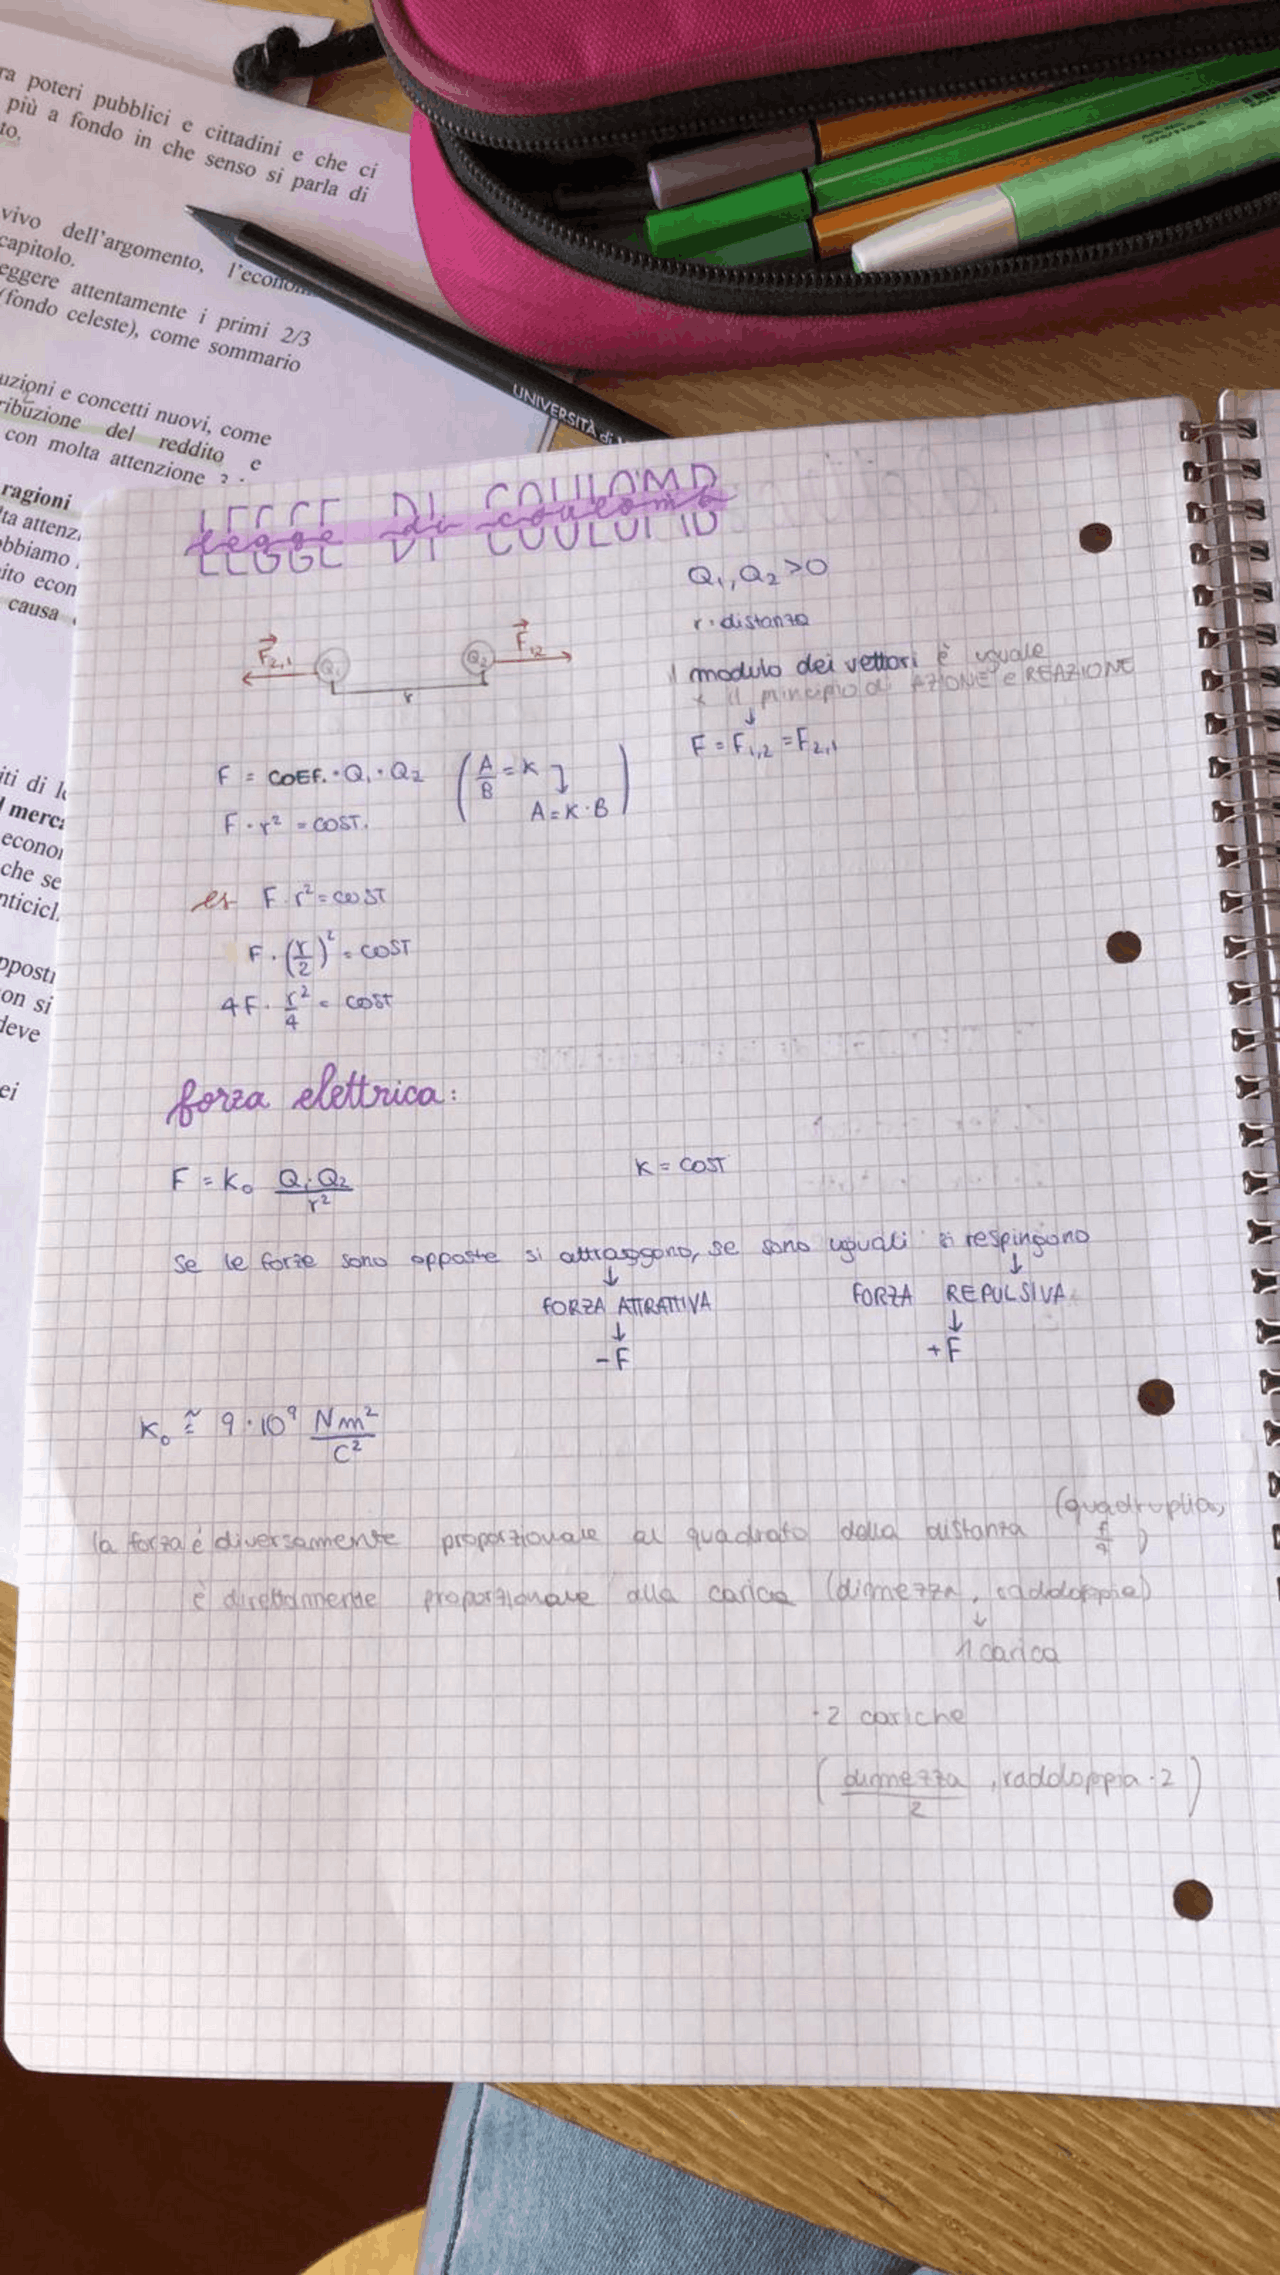 ra poteri pubblici e cittadini e che ci
più a fondo in che senso si parla di
to.
vivo dell'argomento, l'econom
capitolo.
eggere attentamente i primi 2/3
(fondo celeste), come sommario
uzioni e concetti nuovi, come
ribuzione del reddito e
con molta attenzione
ragioni
lta attenz
obbiamo
ito econ
causa
iti di l
l merca
econo
che se
nticicl
pposti
on si
deve
ei
UNIVERSITÀ di
LEGGE DI COULOMB
legge di coulomb
Q₁, Q₂ >0
r · distanza
F⃗2,1 Q₁ Q₂ F⃗1,2
r
il modulo dei vettori è uguale
x il principio di AZIONE e REAZIONE
↓
F = F1,2 = F2,1
F = COEF. · Q₁ · Q₂ (A/B = K
A = K · B)
F · r² = COST.
es F · r² = COST
F · (r/2)² = COST
4F · r²/4 = COST
forza elettrica:
F = K₀ Q₁·Q₂/r² K = COST
se le forze sono opposte si attraggono, se sono uguali si respingono
↓ ↓
FORZA ATTRATTIVA FORZA REPULSIVA
↓ ↓
-F +F
K₀ ≅ 9·10⁹ Nm²/C²
la forza è diversamente proporzionale al quadrato della distanza (quadruplia,
è direttamente proporzionale alla carica (dimezza, raddoppia)
↓
1 carica
·2 cariche
(dimezza/2, raddoppia·2)